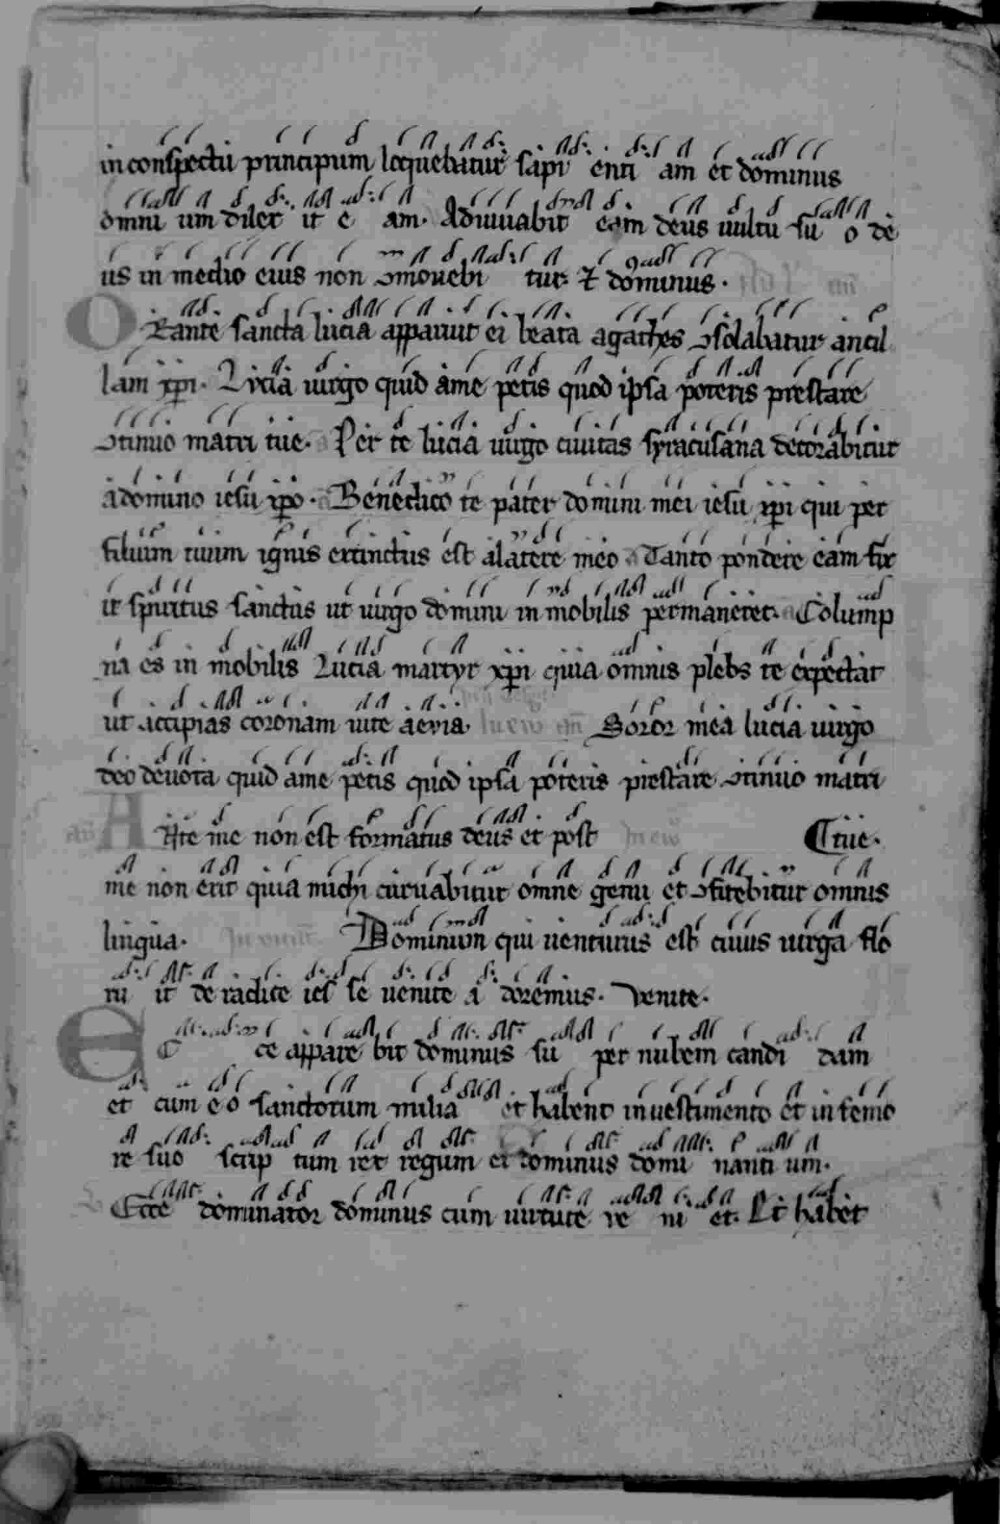 in conspectu principum loquebatur sapi enti am et dominus
omni um dilex it e am. Adiuvabit eam deus uultu su o de
us in medio eius non ɔmouebi tur. ⁊ dominus.
Orante sancta lucia apparuit ei beata agathes ɔsolabatur ancil
lam xpi. Lucia uirgo quid a me petis quod ipsa poteris prestare
ɔtinuo matri tue. Per te lucia uirgo ciuitas syracusana decorabitur
a domino iesu xpo. Benedico te pater domini mei iesu xpi qui per
filium tuum ignis extinctus est a latere meo Tanto pondere eam fix
it spiritus sanctus ut uirgo domini in mobilis permaneret. Colump
na es in mobilis Lucia martyr xpi quia omnis plebs te expectat
ut accipias coronam uite aeuia. Soror mea lucia uirgo
deo deuota quid a me petis quod ipsa poteris prestare ɔtinuo matri
Ante me non est formatus deus et post tue.
me non erit quia michi curuabitur omne genu et ɔfitebitur omnis
lingua. Dominum qui uenturus est cuius uirga flo
ru it de radice ies se uenite a doremus. Venite.
Ecce appare bit dominus su per nubem candi dam
et cum eo sanctorum milia et habens in uestimento et in femo
re suo scrip tum rex regum et dominus domi nanti um.
Ecce dominator dominus cum uirtute ve ni et. Et habet